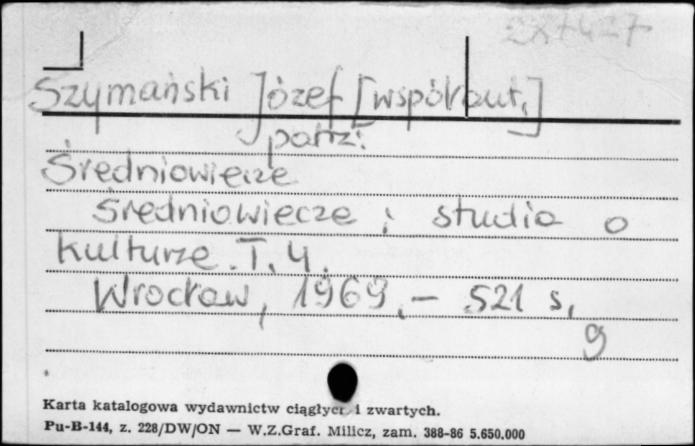 227427
Szymański Józef [współaut.]
patrz:
Średniowiecze
Średniowiecze : studia o
kulturze. T. 4.
Wrocław, 1969.- 521 s,
g
Karta katalogowa wydawnictw ciągłych i zwartych.
Pu-B-144, z. 228/DW/ON — W.Z.Graf. Milicz, zam. 388-86 5.650.000